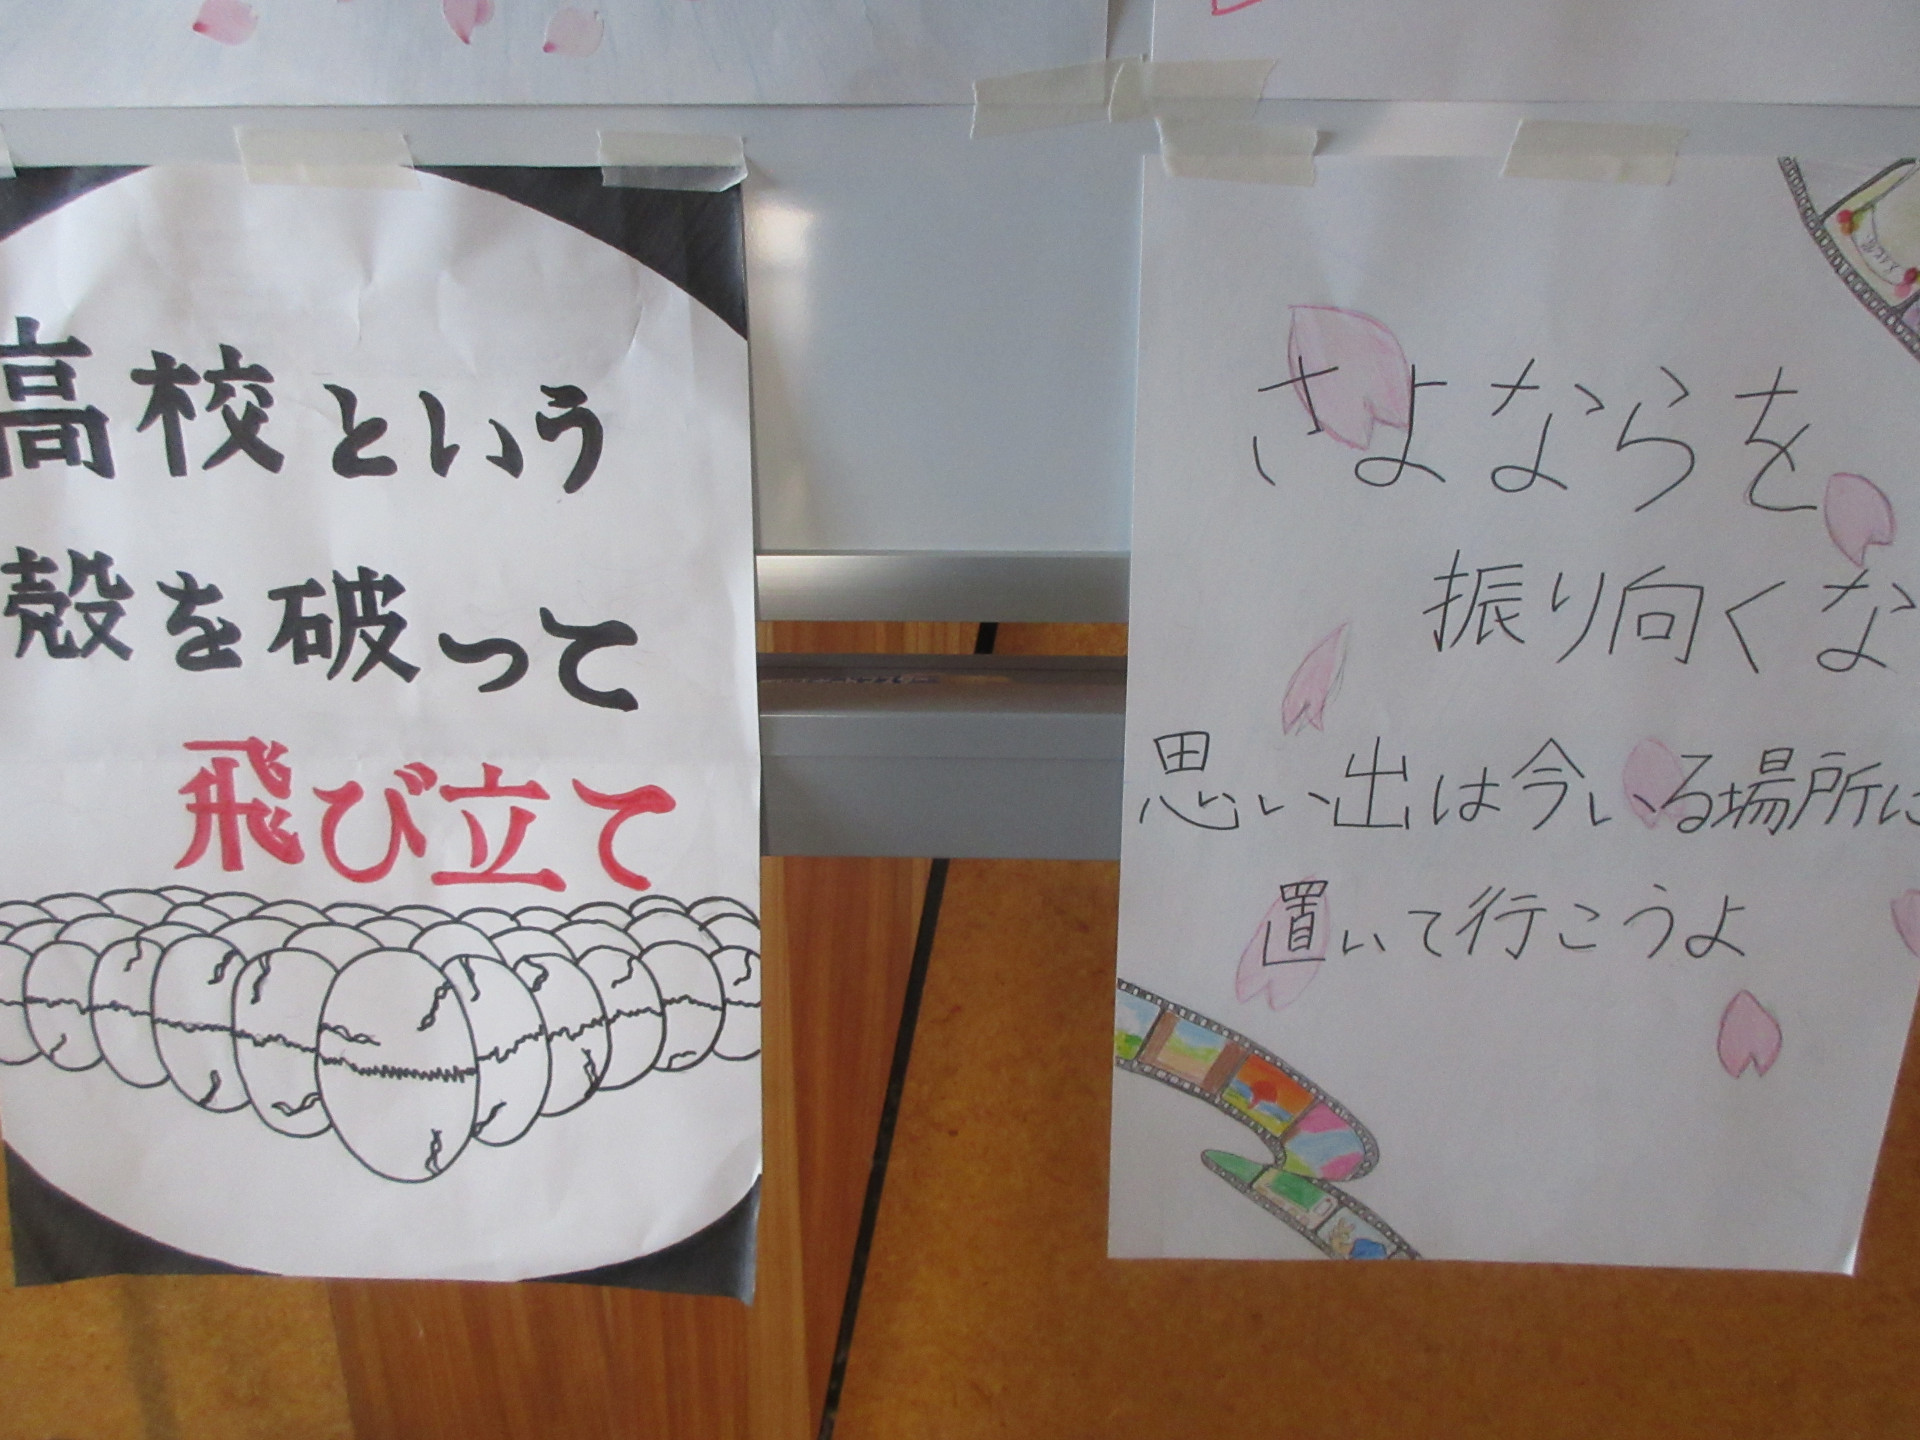 高校という
殻を破って
飛び立て
さよならを
振り向くな
思い出は今いる場所に
置いて行こうよ